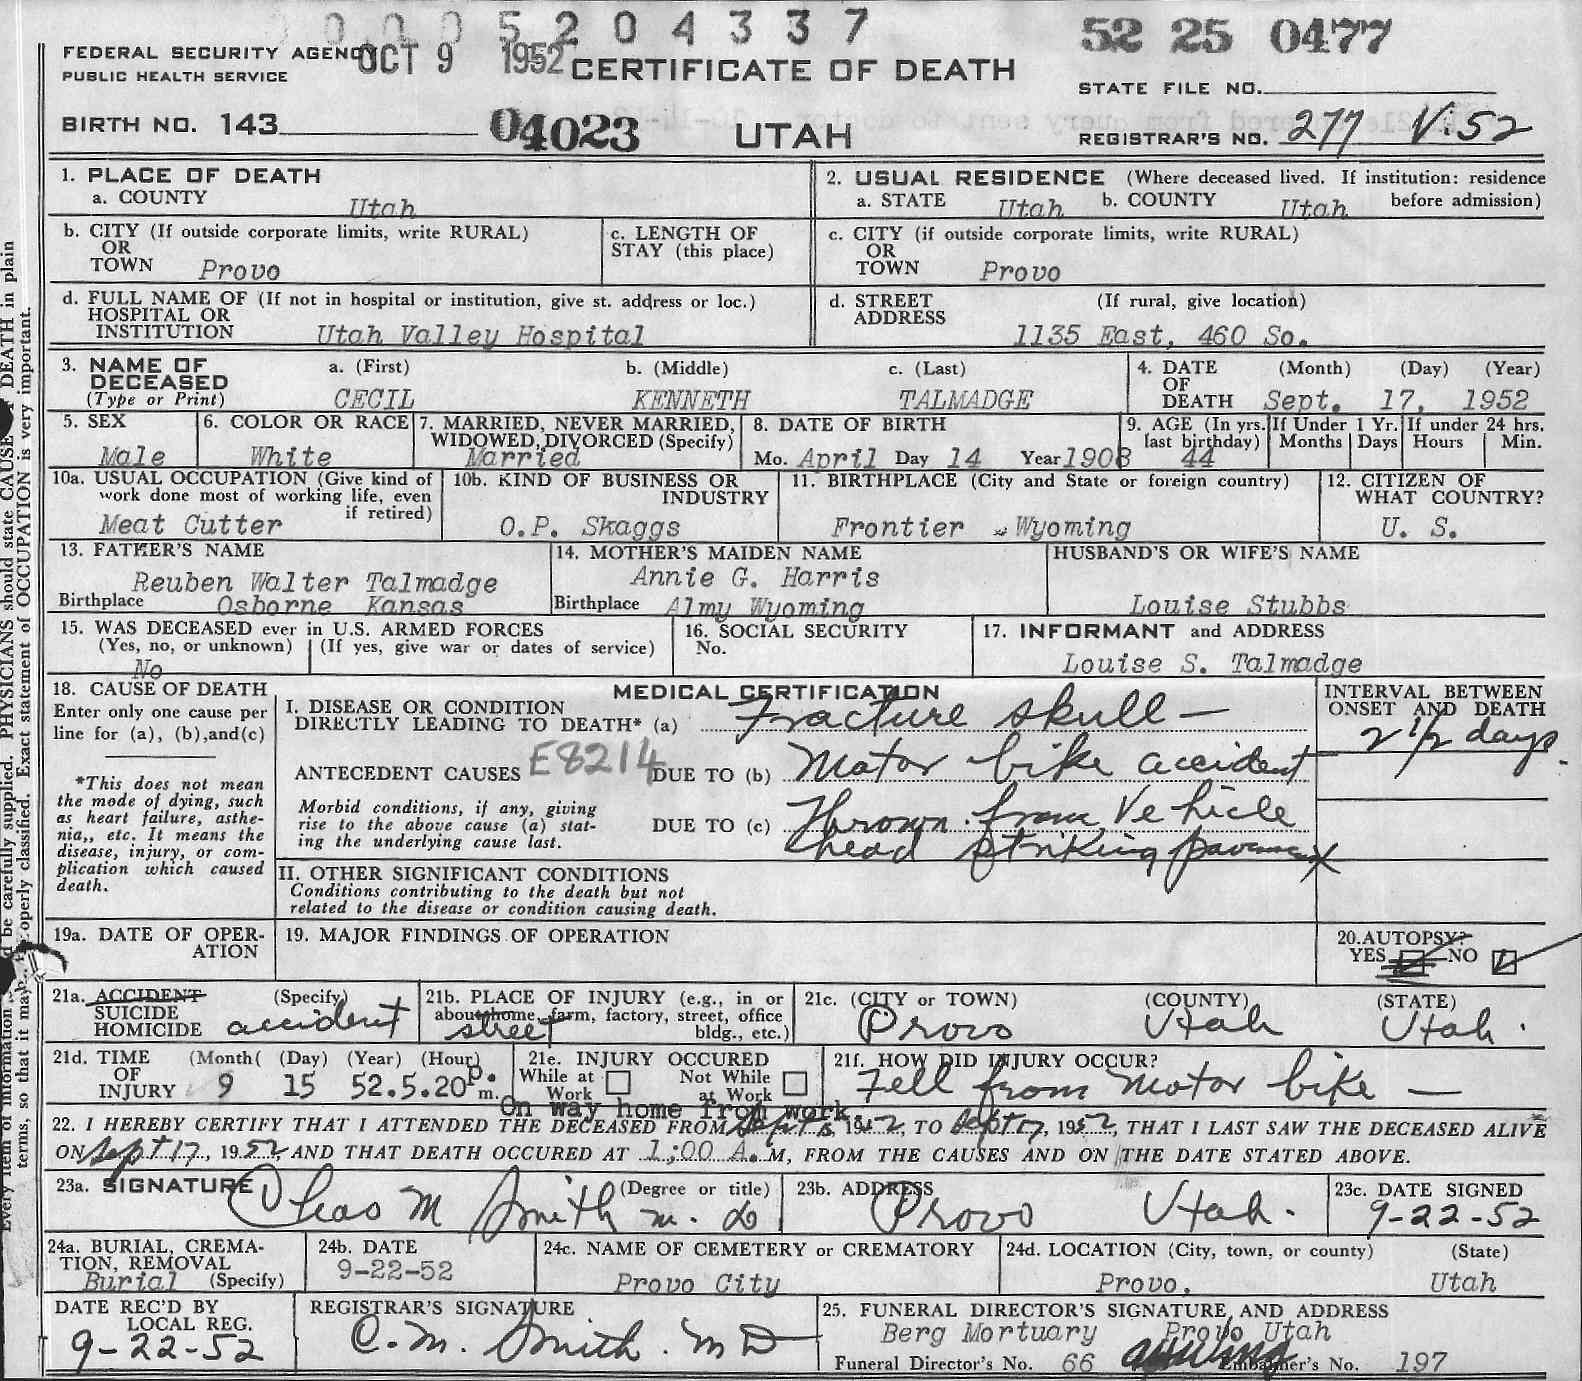 0005204337
52 25 0477
FEDERAL SECURITY AGENCY
PUBLIC HEALTH SERVICE
OCT 9 1952
CERTIFICATE OF DEATH
STATE FILE NO.
BIRTH NO. 143
04023
UTAH
REGISTRAR'S NO. 277 V:52
1. PLACE OF DEATH
a. COUNTY Utah
2. USUAL RESIDENCE (Where deceased lived. If institution: residence before admission)
a. STATE Utah b. COUNTY Utah
b. CITY (If outside corporate limits, write RURAL)
OR
TOWN Provo
c. LENGTH OF
STAY (this place)
c. CITY (if outside corporate limits, write RURAL)
OR
TOWN Provo
d. FULL NAME OF (If not in hospital or institution, give st. address or loc.)
HOSPITAL OR
INSTITUTION Utah Valley Hospital
d. STREET (If rural, give location)
ADDRESS 1135 East, 460 So.
3. NAME OF
DECEASED
(Type or Print)
a. (First) CECIL
b. (Middle) KENNETH
c. (Last) TALMADGE
4. DATE (Month) (Day) (Year)
OF
DEATH Sept. 17, 1952
5. SEX
Male
6. COLOR OR RACE
White
7. MARRIED, NEVER MARRIED,
WIDOWED, DIVORCED (Specify)
Married
8. DATE OF BIRTH
Mo. April Day 14 Year 1908
9. AGE (In yrs.
last birthday)
44
If Under 1 Yr.
Months Days
If under 24 hrs.
Hours Min.
10a. USUAL OCCUPATION (Give kind of
work done most of working life, even
if retired)
Meat Cutter
10b. KIND OF BUSINESS OR
INDUSTRY
O.P. Skaggs
11. BIRTHPLACE (City and State or foreign country)
Frontier Wyoming
12. CITIZEN OF
WHAT COUNTRY?
U. S.
13. FATHER'S NAME
Reuben Walter Talmadge
Birthplace Osborne Kansas
14. MOTHER'S MAIDEN NAME
Annie G. Harris
Birthplace Almy Wyoming
HUSBAND'S OR WIFE'S NAME
Louise Stubbs
15. WAS DECEASED ever in U.S. ARMED FORCES
(Yes, no, or unknown) (If yes, give war or dates of service)
No
16. SOCIAL SECURITY
No.
17. INFORMANT and ADDRESS
Louise S. Talmadge
18. CAUSE OF DEATH
Enter only one cause per
line for (a), (b),and(c)
*This does not mean
the mode of dying, such
as heart failure, asthe-
nia,, etc. It means the
disease, injury, or com-
plication which caused
death.
MEDICAL CERTIFICATION
I. DISEASE OR CONDITION
DIRECTLY LEADING TO DEATH* (a) Fracture skull —
ANTECEDENT CAUSES E8214 DUE TO (b) Motor bike accident
Morbid conditions, if any, giving
rise to the above cause (a) stat-
ing the underlying cause last.
DUE TO (c) Thrown from Vehicle
head striking pavement
II. OTHER SIGNIFICANT CONDITIONS
Conditions contributing to the death but not
related to the disease or condition causing death.
INTERVAL BETWEEN
ONSET AND DEATH
2 1/2 days.
19a. DATE OF OPER-
ATION
19. MAJOR FINDINGS OF OPERATION
20.AUTOPSY?
YES NO
21a. ACCIDENT (Specify)
SUICIDE
HOMICIDE accident
21b. PLACE OF INJURY (e.g., in or
about home, farm, factory, street, office
bldg., etc.)
street
21c. (CITY or TOWN) (COUNTY) (STATE)
Provo Utah Utah.
21d. TIME (Month( (Day) (Year) (Hour)
OF
INJURY 9 15 52. 5.20 p. m.
21e. INJURY OCCURED
While at Work Not While at Work
On way home from work.
21f. HOW DID INJURY OCCUR?
Fell from motor bike —
22. I HEREBY CERTIFY THAT I ATTENDED THE DECEASED FROM Sept 1952, TO Sept 17, 1952, THAT I LAST SAW THE DECEASED ALIVE
ON Sept 17, 1952 AND THAT DEATH OCCURED AT 1;00 A. M, FROM THE CAUSES AND ON THE DATE STATED ABOVE.
23a. SIGNATURE (Degree or title)
Chas M Smith M. D
23b. ADDRESS
Provo Utah.
23c. DATE SIGNED
9-22-52
24a. BURIAL, CREMA-
TION, REMOVAL
Burial (Specify)
24b. DATE
9-22-52
24c. NAME OF CEMETERY or CREMATORY
Provo City
24d. LOCATION (City, town, or county) (State)
Provo, Utah
DATE REC'D BY
LOCAL REG.
9-22-52
REGISTRAR'S SIGNATURE
C. M. Smith. MD
25. FUNERAL DIRECTOR'S SIGNATURE AND ADDRESS
Berg Mortuary Provo Utah
Funeral Director's No. 66 Embalmer's No. 197
DEATH in plain
is very important.
PHYSICIANS should state CAUSE
Exact statement of OCCUPATION
be carefully supplied.
properly classified.
Every item of information
terms, so that it may